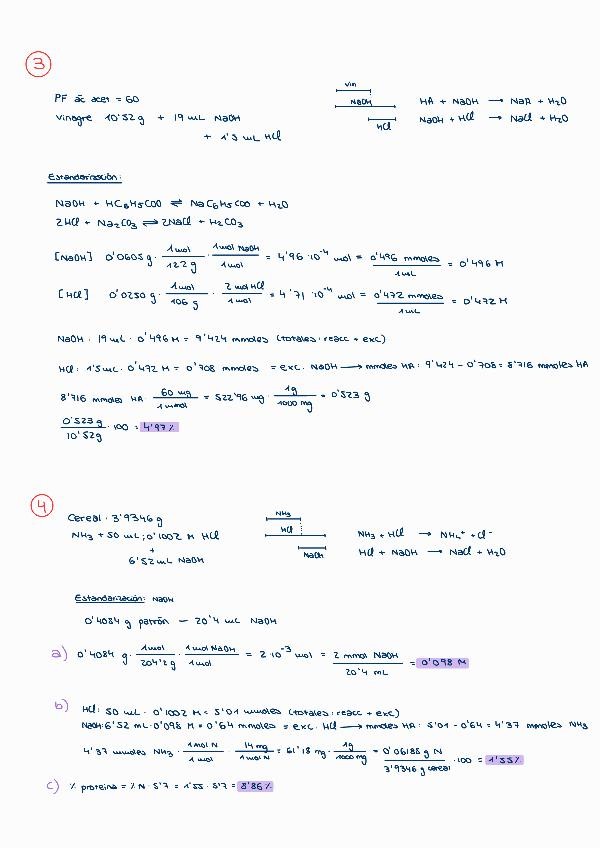 3
PF ác acet = 60
Vinagre 10'52 g + 19 mL NaOH
+ 1'5 mL HCl
vin
NaOH
HCl
HA + NaOH → NaA + H2O
NaOH + HCl → NaCl + H2O
Estandarización:
NaOH + HC6H5COO ⇌ NaC6H5COO + H2O
2HCl + Na2CO3 ⇌ 2NaCl + H2CO3
[NaOH] 0'0605 g · 1 mol / 122 g · 1 mol NaOH / 1 mol = 4'96 · 10^-4 mol = 0'496 mmoles / 1 mL = 0'496 M
[HCl] 0'0250 g · 1 mol / 106 g · 2 mol HCl / 1 mol = 4'71 · 10^-4 mol = 0'472 mmoles / 1 mL = 0'472 M
NaOH · 19 mL · 0'496 M = 9'424 mmoles (totales: reacc + exc)
HCl: 1'5 mL · 0'472 M = 0'708 mmoles = exc. NaOH → mmoles HA: 9'424 - 0'708 = 8'716 mmoles HA
8'716 mmoles HA · 60 mg / 1 mmol = 522'96 mg · 1 g / 1000 mg = 0'523 g
0'523 g / 10'52 g · 100 = 4'97 %
4
Cereal: 3'9346 g
NH3 + 50 mL; 0'1002 M HCl
+
6'52 mL NaOH
NH3
HCl
NaOH
NH3 + HCl → NH4+ + Cl-
HCl + NaOH → NaCl + H2O
Estandarización: NaOH
0'4084 g patrón — 20'4 mL NaOH
a) 0'4084 g · 1 mol / 204'2 g · 1 mol NaOH / 1 mol = 2 · 10^-3 mol = 2 mmol NaOH / 20'4 mL = 0'098 M
b) HCl: 50 mL · 0'1002 M = 5'01 mmoles (totales: reacc + exc)
NaOH: 6'52 mL · 0'098 M = 0'64 mmoles = exc. HCl → mmoles HA: 5'01 - 0'64 = 4'37 mmoles NH3
4'37 mmoles NH3 · 1 mol N / 1 mol · 14 mg / 1 mol N = 61'18 mg · 1 g / 1000 mg = 0'06188 g N / 3'9346 g cereal · 100 = 1'55 %
c) % proteína = % N · 5'7 = 1'55 · 5'7 = 8'86 %